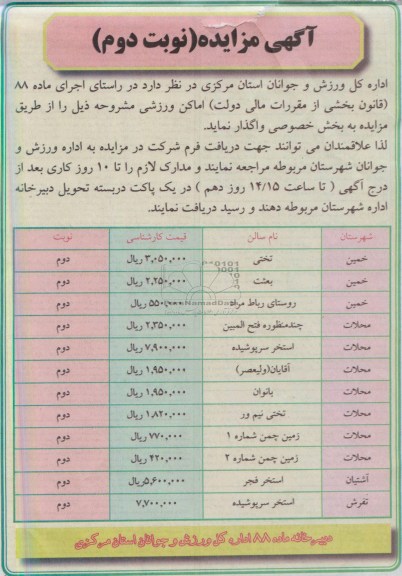 آگهی مزایده(نوبت دوم)
اداره کل ورزش و جوانان استان مرکزی در نظر دارد در راستای اجرای ماده ۸۸
(قانون بخشی از مقررات مالی دولت) اماکن ورزشی مشروحه ذیل را از طریق
مزایده به بخش خصوصی واگذار نماید.
لذا علاقمندان می توانند جهت دریافت فرم شرکت در مزایده به اداره ورزش و
جوانان شهرستان مربوطه مراجعه نمایند و مدارک لازم را تا ۱۰ روز کاری بعد از
درج آگهی ( تا ساعت ۱۴/۱۵ روز دهم ) در یک پاکت دربسته تحویل دبیرخانه
اداره شهرستان مربوطه دهند و رسید دریافت نمایند.
شهرستان نام سالن قیمت کارشناسی نوبت
خمین تختی ۳,۰۵۰,۰۰۰ ریال دوم
خمین بعثت ۲,۲۵۰,۰۰۰ ریال دوم
خمین روستای رباط مراد ۵۵۰,۰۰۰ ریال دوم
محلات چندمنظوره فتح المبین ۲,۳۵۰,۰۰۰ ریال دوم
محلات استخر سرپوشیده ۷,۹۰۰,۰۰۰ ریال دوم
محلات آقایان(ولیعصر) ۱,۹۵۰,۰۰۰ ریال دوم
محلات بانوان ۱,۹۵۰,۰۰۰ ریال دوم
محلات تختی نیم ور ۱,۸۲۰,۰۰۰ ریال دوم
محلات زمین چمن شماره ۱ ۷۷۰,۰۰۰ ریال دوم
محلات زمین چمن شماره ۲ ۴۲۰,۰۰۰ ریال دوم
آشتیان استخر فجر ۵,۶۰۰,۰۰۰ریال دوم
تفرش استخر سرپوشیده ۷,۷۰۰,۰۰۰ دوم
دبیرخانه ماده ۸۸ اداره کل ورزش و جوانان استان مرکزی